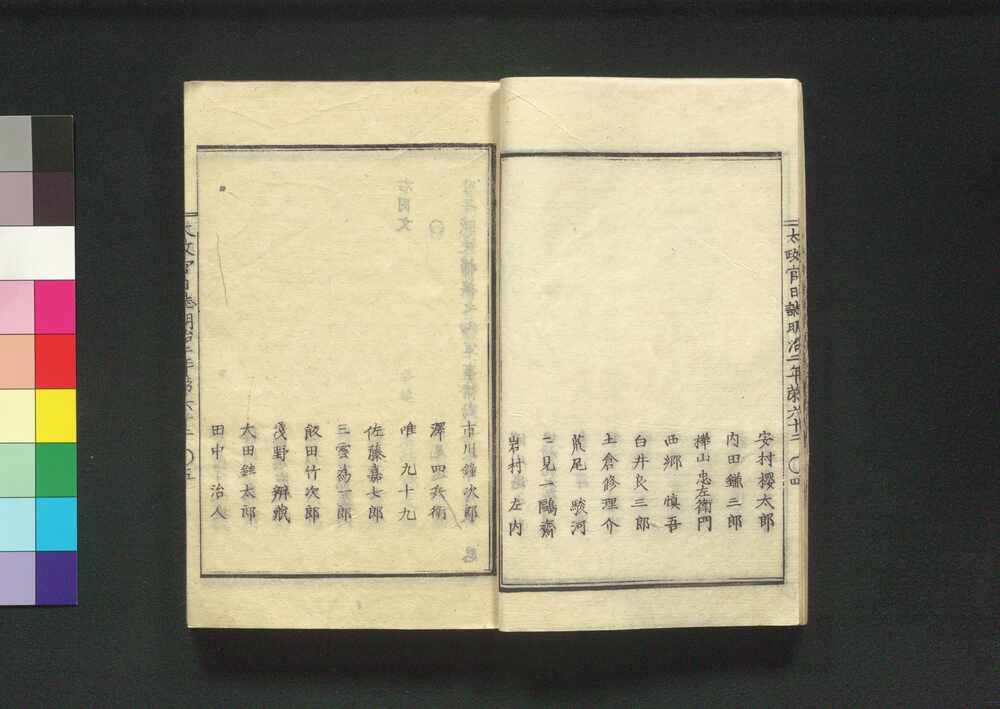 太政官日誌明治二年第六十二 〇四
安村櫻太郎
内田鎌三郎
樺山忠左衛門
西郷 慎吾
白井良三郎
土倉修理介
荒尾 駿河
二見一鷗齋
岩村 左内
市川鐘次郎
澤 四兵衛
唯 九十九
佐藤嘉七郎
三雲為一郎
飯田竹次郎
淺野 辨藏
大田錐太郎
田中 治人
太政官日誌明治二年第六十二 〇五